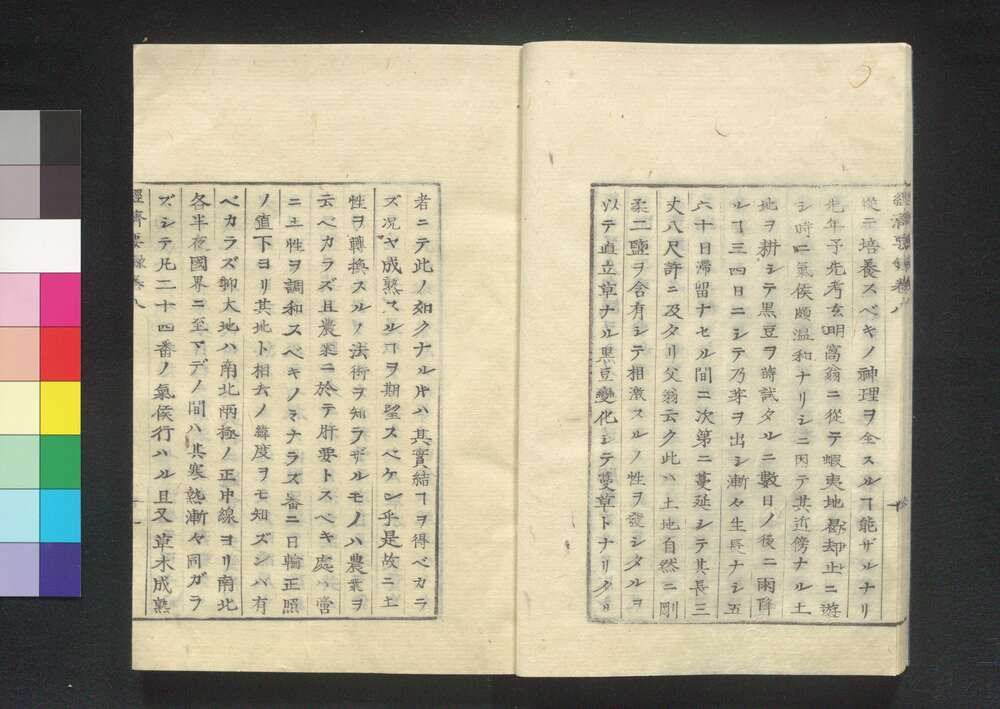 經濟要錄卷八
從テ培養スベキノ神理ヲ全スルヿ能ザルナリ
先年予先考玄明窩翁ニ從テ蝦夷地曷却止ニ遊
シ時ニ氣侯頗溫和ナリシニ因テ其近傍ナル土
地ヲ耕シテ黒豆ヲ蒔試タルニ數日ノ後ニ雨降
ルヿ三四日ニシテ乃芽ヲ出シ漸々生長ナシ五
六十日滯留ナセル間ニ次第ニ蔓延シテ其長三
丈八尺許ニ及タリ父翁云ク此ハ土地自然ニ剛
柔二鹽ヲ含有シテ相激スルノ性ヲ發シタルヲ
以テ直立草ナル黒豆變化シテ蔓草トナリタル
者ニテ此ノ如クナル片ハ其實結ヿヲ得ベカラ
ズ况ヤ成熟スルヿヲ期望スベケン乎是故ニ土
性ヲ轉換スルノ法術ヲ知ラザルモノハ農業ヲ
云ベカラズ且農業ニ於テ肝要トスベキ處ハ啻
ニ土性ヲ調和スベキノミナラズ審ニ日輪正照
ノ値下ヨリ其地ト相去ノ緯度ヲモ知ズンバ有
ベカラズ抑大地ハ南北兩極ノ正中線ヨリ南北
各半夜國界ニ至マデノ間ハ其寒熱漸々同ガラ
ズシテ凡二十四番ノ氣侯行ハル且又草木成熟
經濟要錄卷八